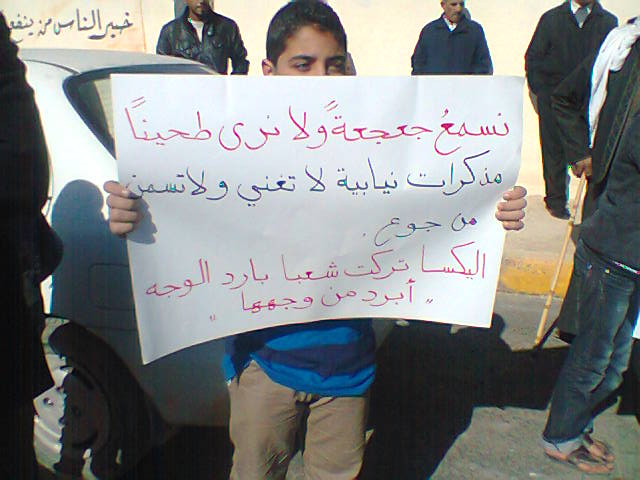 خير الناس من ينفع
نسمعُ جعجعةً ولا نرى طحيناً
مذكرات نيابية لا تغني ولا تسمن
من جوع .
اليكسا تركت شعبا بارد الوجه
" أبرد من وجهها "